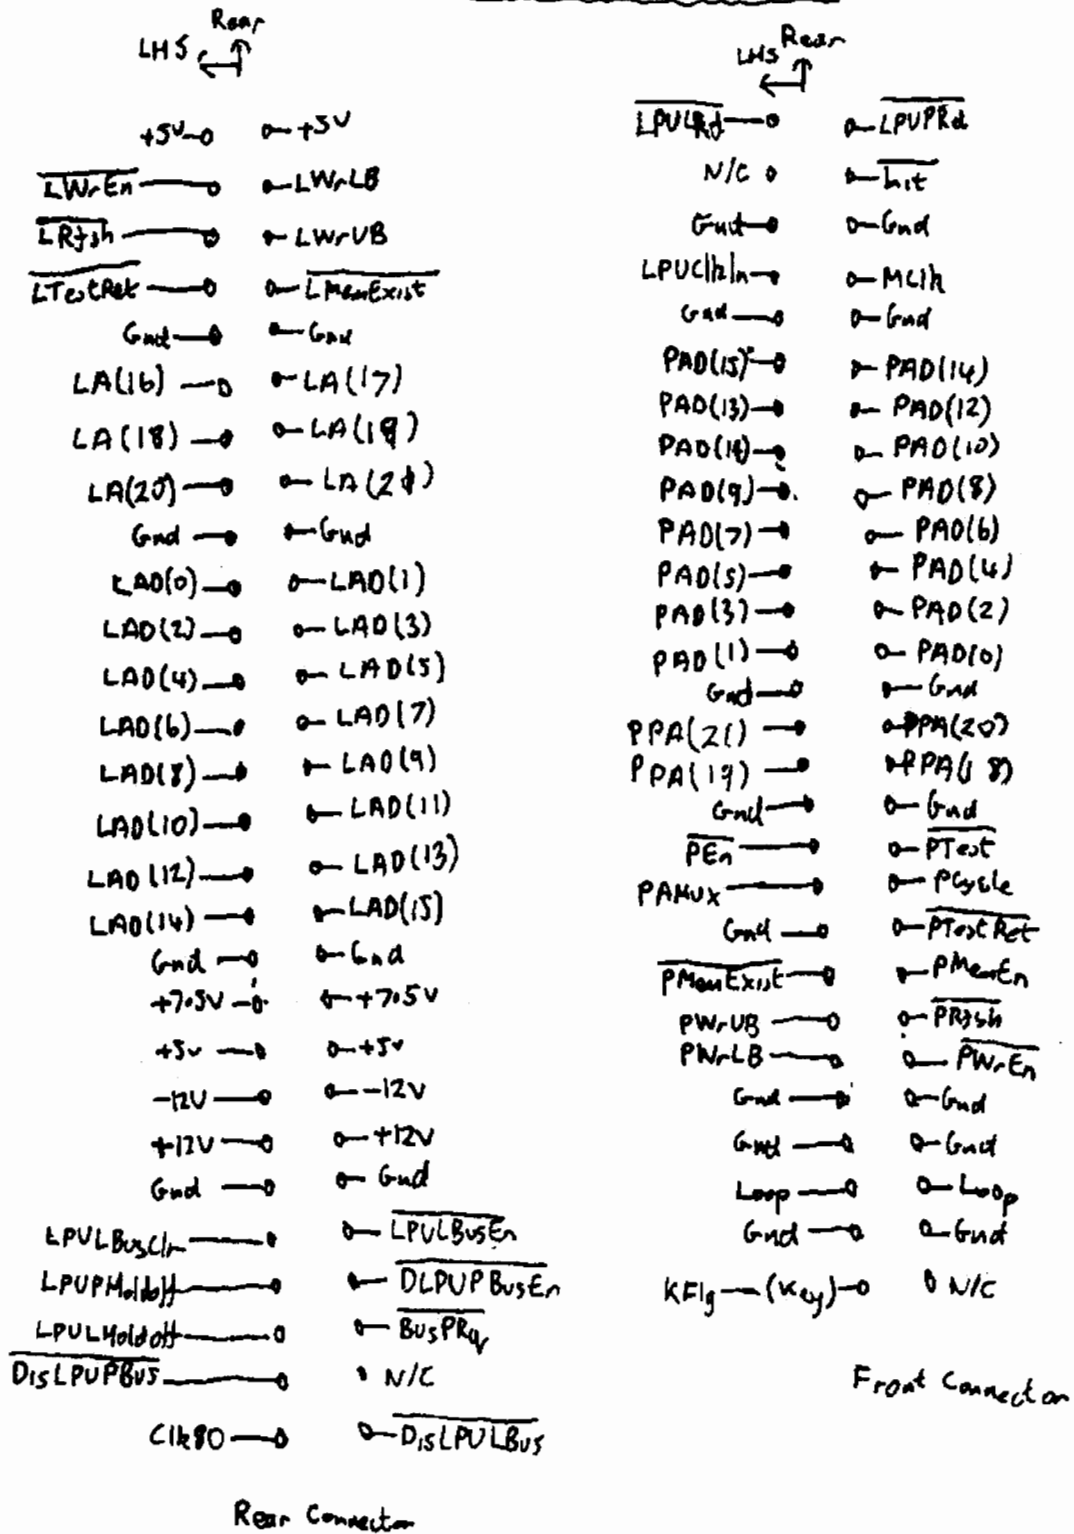 Rear
LHS
+5V +5V
LWrEn LWrLB
LRfsh LWrUB
LTestRet LMemExist
Gnd Gnd
LA(16) LA(17)
LA(18) LA(19)
LA(20) LA(21)
Gnd Gnd
LAD(0) LAD(1)
LAD(2) LAD(3)
LAD(4) LAD(5)
LAD(6) LAD(7)
LAD(8) LAD(9)
LAD(10) LAD(11)
LAD(12) LAD(13)
LAD(14) LAD(15)
Gnd Gnd
+7.5V +7.5V
+5V +5V
-12V -12V
+12V +12V
Gnd Gnd
LPULBusClr LPULBusEn
LPUPHoldoff DLPUPBusEn
LPULHoldoff BusPRq
DisLPUPBus N/C
Clk80 DisLPULBus
Rear Connector
Rear
LHS
LPULRd LPUPRd
N/C Init
Gnd Gnd
LPUClkIn MClk
Gnd Gnd
PAD(15) PAD(14)
PAD(13) PAD(12)
PAD(11) PAD(10)
PAD(9) PAD(8)
PAD(7) PAD(6)
PAD(5) PAD(4)
PAD(3) PAD(2)
PAD(1) PAD(0)
Gnd Gnd
PPA(21) PPA(20)
PPA(19) PPA(18)
Gnd Gnd
PEn PTest
PAMUX PCycle
Gnd PTestRet
PMemExist PMemEn
PWrUB PRfsh
PWrLB PWrEn
Gnd Gnd
Gnd Gnd
Loop Loop
Gnd Gnd
KFlg (Key) N/C
Front Connector